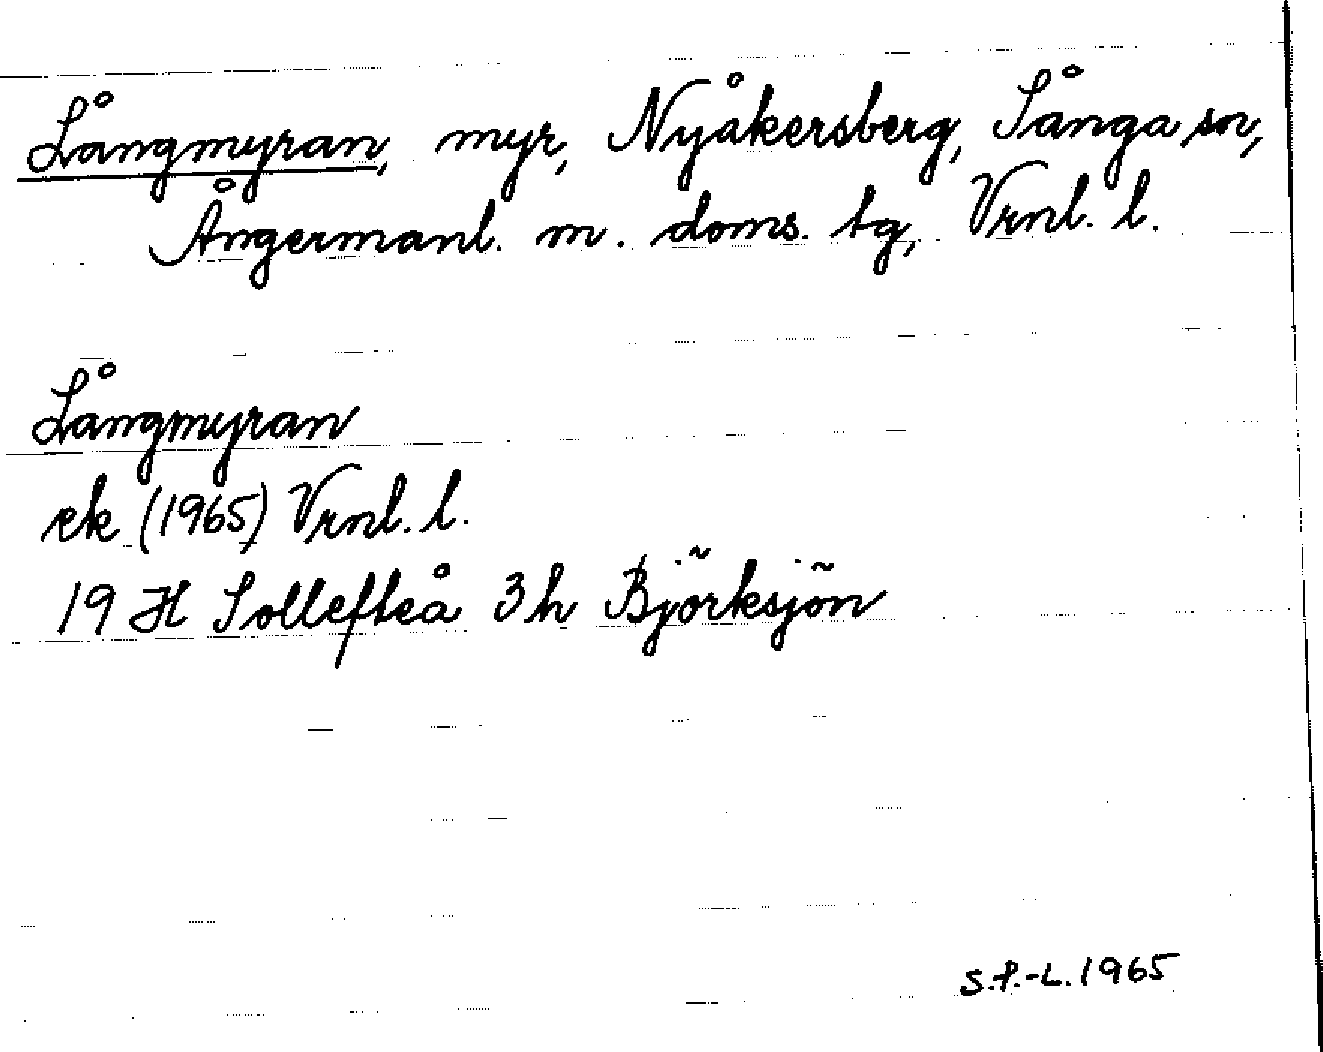 Långmyran, myr, Nyåkersberg, Sånga sn,
Ångermanl. m. doms. tg, Vrnl. l.
Långmyran
ek (1965) Vrnl. l.
19 H Sollefteå 3h Björksjön
S.P.-L. 1965